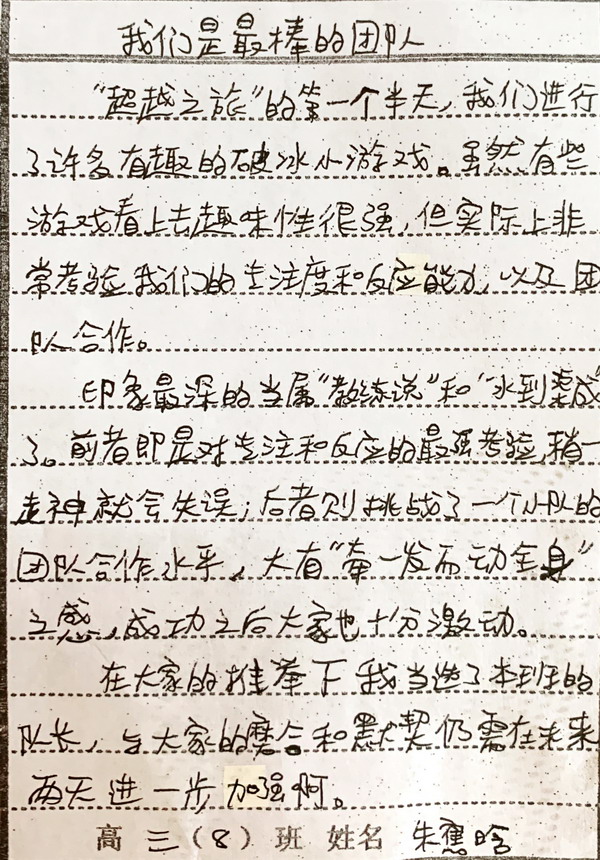 我们是最棒的团队
"超越之旅"的第一个半天,我们进行
了许多有趣的破冰小游戏。虽然有些
游戏看上去趣味性很强,但实际上非
常考验我们的专注度和反应能力,以及团
队合作。
印象最深的当属"教练说"和"水到渠成"
了。前者即是对专注和反应的最强考验,稍一
走神就会失误;后者则挑战了一个小队的
团队合作水平,大有"牵一发而动全身"
之感,成功之后大家也十分激动。
在大家的推荐下我当选了本班的
队长,与大家的磨合和默契仍需在未来
两天进一步加强啊。
高三(8)班 姓名 朱